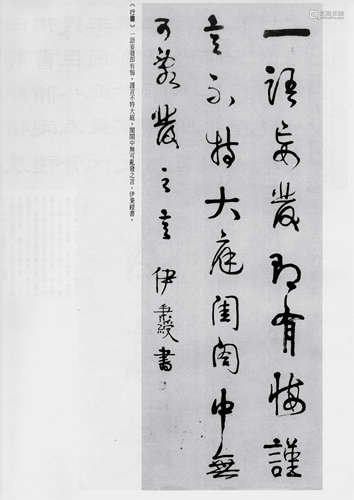 一語妄發即有悔謹
言不特大庭閨閤中無
可亂發之言 伊秉綬書
《行書》一語妄發即有悔，謹言不特大庭，閨閤中無可亂發之言。伊秉綬書。